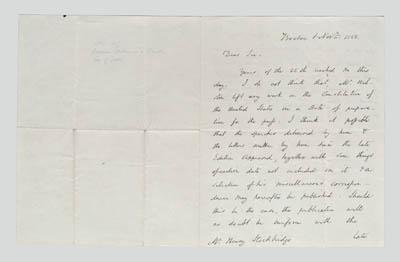 Boston 1 Nov. 1852.
Dear Sir.
Yours of the 25th reached me this
day. I do not think that Mr Web-
ster left any work on the Constitution of
the United States in a State of prepara-
tion for the press. I think it possible
that the speeches delivered by him &
the letters written by him since the late
Edition appeared, together with some things
of earlier date not included in it & a
selection of his miscellaneous correspon-
dence may hereafter be published. Should
this be the case, the publication will
no doubt be uniform with the
Mr. Henry Stockbridge
late